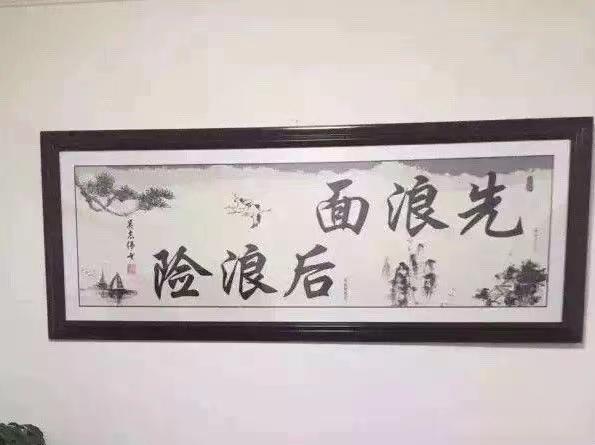 先浪面
后浪险